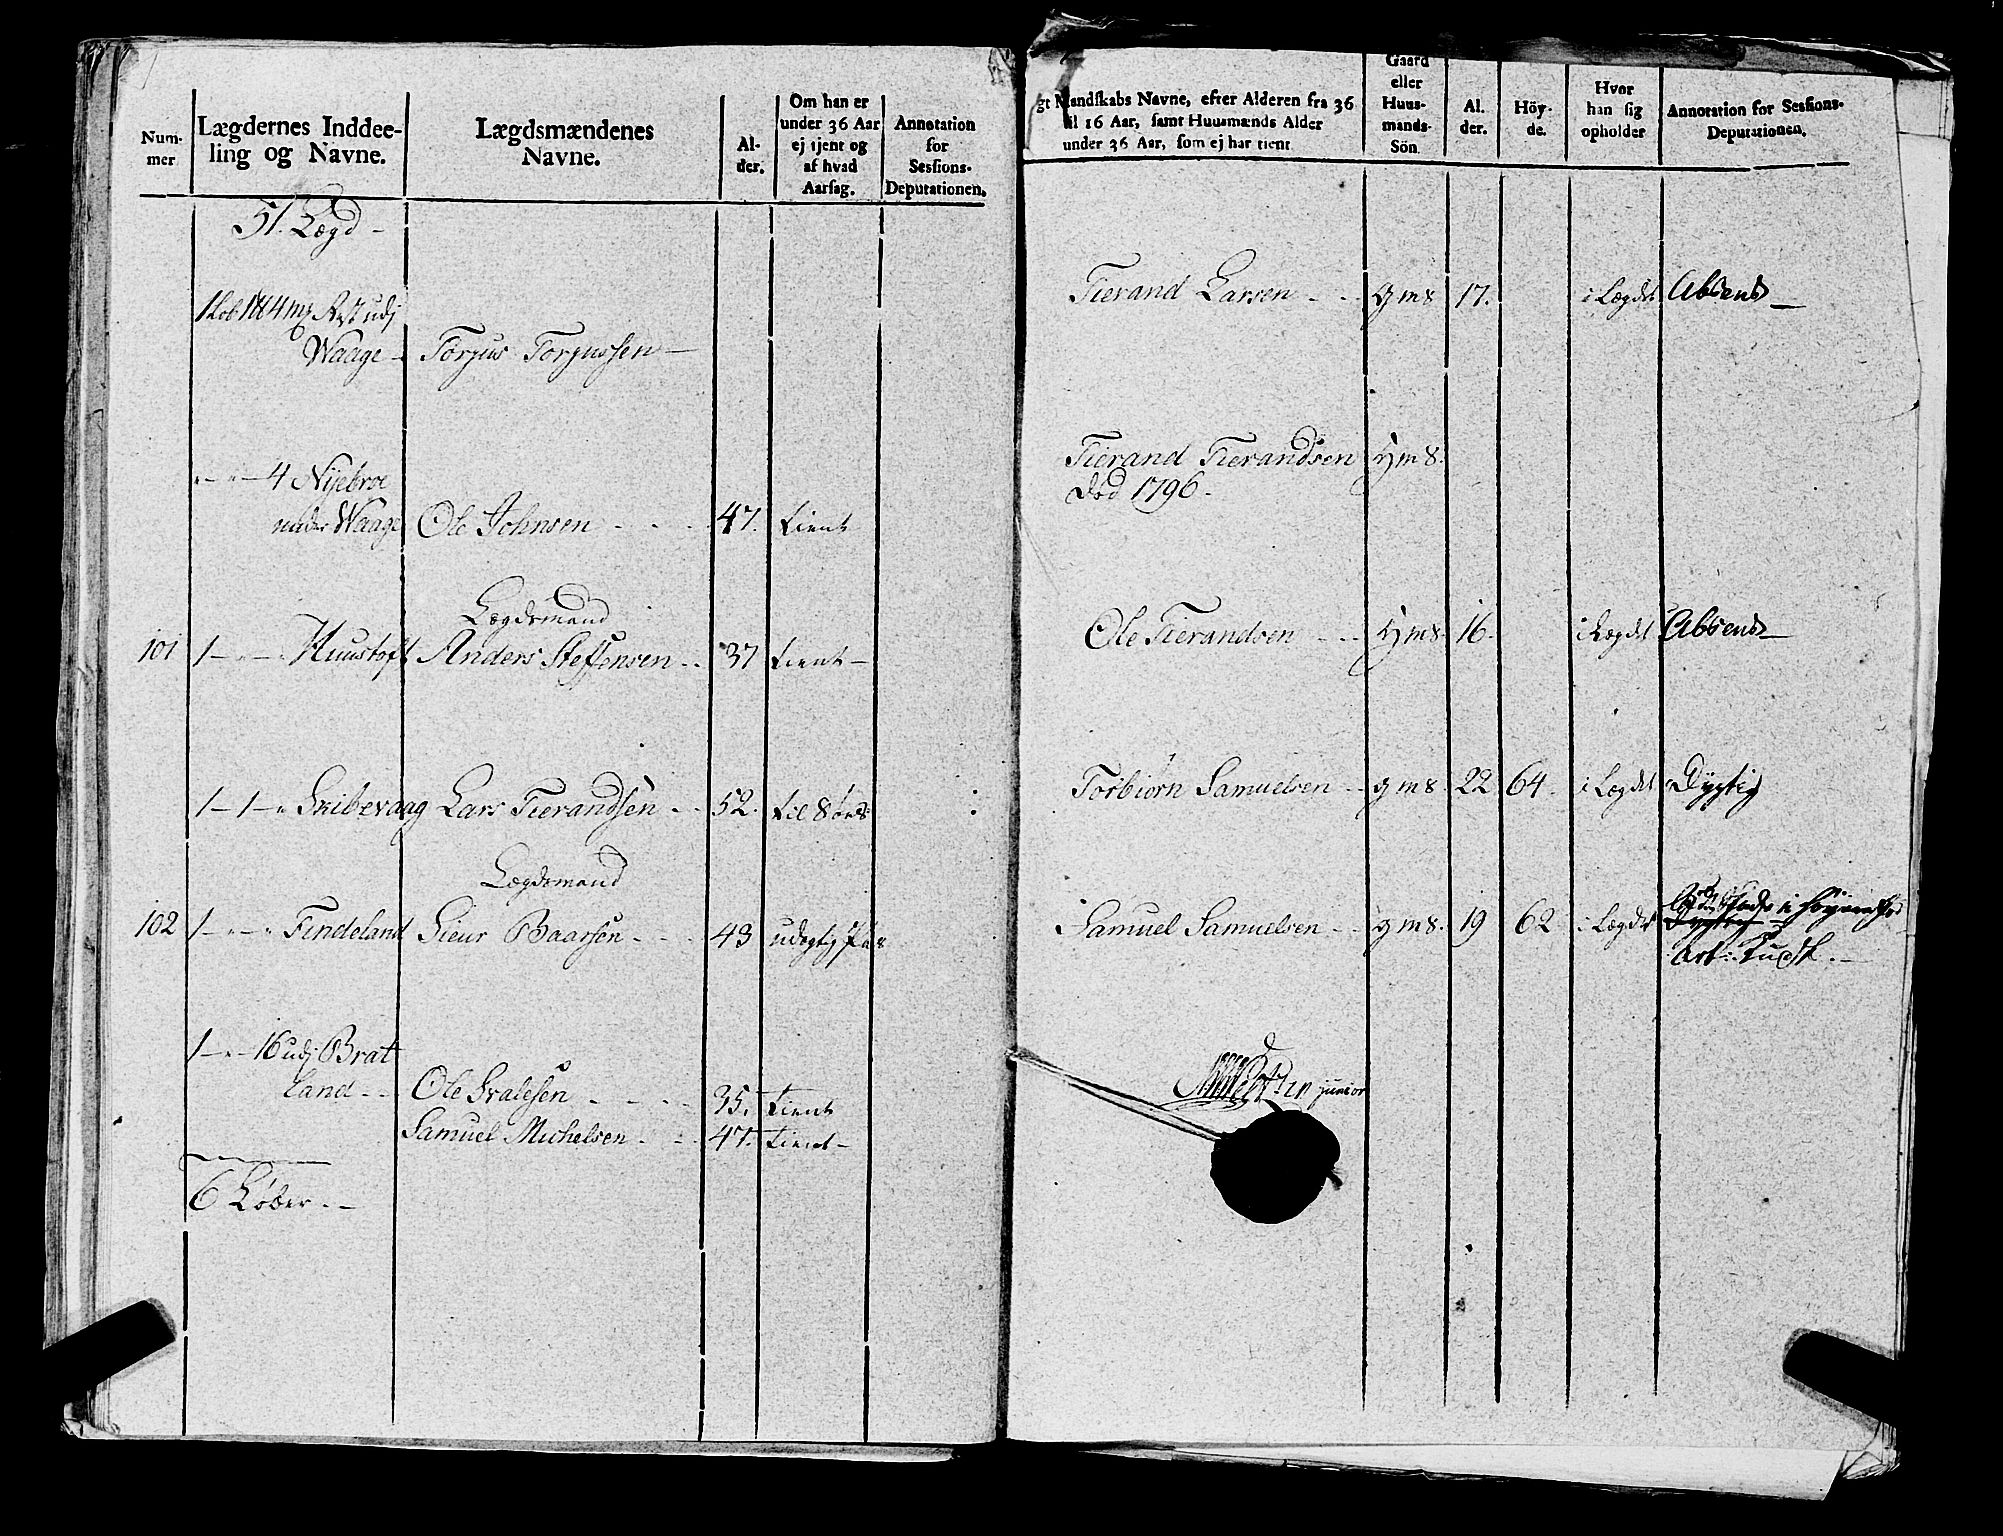 Num-
mer
Lægdernes Inddee-
ling og Navne.
Lægdsmændenes
Navne.
Al-
der.
Om han er
under 36 Aar
ej tjent og
af hvad
Aarsag.
Annotation
for
Sessions-
Deputationen.
51. Lægd -
Waage - Torjus Torjussen -
4 Nijebroe
under Waage Ole Johnsen - - - 47. tient
Lægdsmand
101 1 - " - " Huustoft Anders Steffensen - - 37 tient -
1 - 1 - " Skibevaag Lars Tierandsen - - 52. til Søes
Lægdsmand
102 1 - " - " Findeland Sieur Baarsen - - - 43
1 - " - 16 udj Brat
land - - Ole Svalesen - - - - 35. tient
Samuel Michelsen - - - 47. tient -
6 Løber. -
gt Mandskabs Navne, efter Alderen fra 36
til 16 Aar, samt Huusmænds Alder
under 36 Aar, som ej har tient
Gaard
eller
Huus-
mands-
Sön
Al.
der.
Höy-
de.
Hvor
han sig
opholder
Annotation for Sessions-
Deputationen.
Tierand Larsen - - gms 17. i Lægdet Absend -
Tierand Tierandsen gms.
død 1796 -
Ole Tierandsen - - - gms. 16. i Lægdet Absend -
Torbiørn Samuelsen - - gms. 22 64. i Lægdet Dygtig
Samuel Samuelsen - - gms. 19 62 i Lægdet
junior